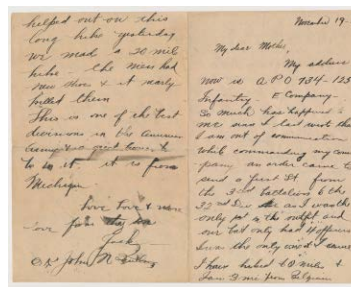 helped out on this
long hike yesterday
we mad a 20 mile
hike. the men had
new shoes & it nearly
killed them
This is one of the best
divisions in the American
army & a great honor to
be in it. it is from
Michigan
Love Love & more
love from
Jack
OK John N
November 19
My dear Mother,
My address
now is A P O 734-125
Infantry. E Company.
So much has happened to
me since I last wrote that
I am out of communication
while commanding my com
pany an order came to
send a first Lt. from
the 3rd battalion to the
32nd Div as I was the
only in the outfit and
we but only had 4 officers
I was the only one I
I have hiked 60 miles &
from Belgium